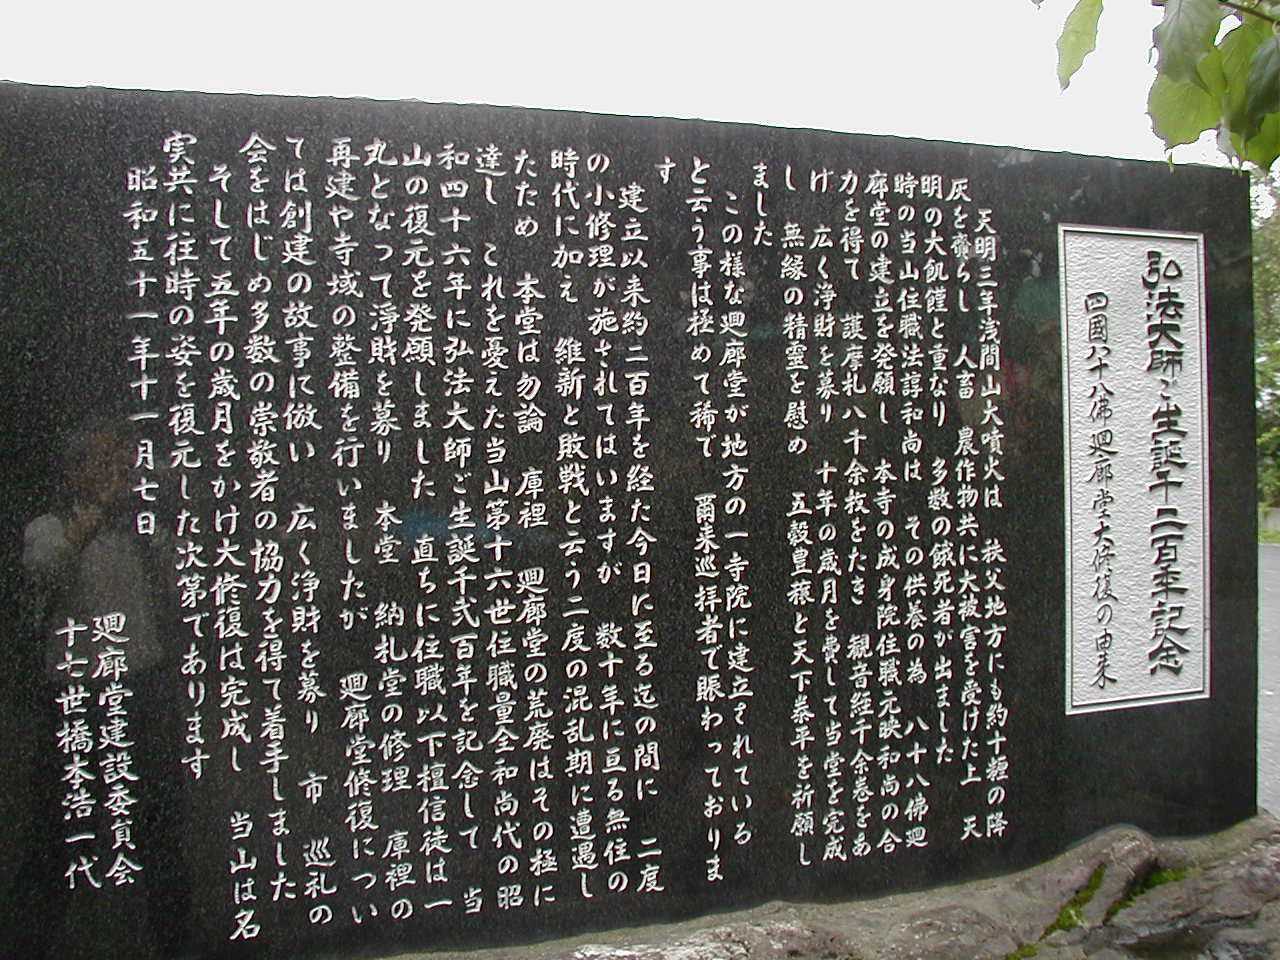 弘法大師ご生誕千二百年記念
四國八十八佛廻廊堂大修復の由来
天明三年浅間山大噴火は　秩父地方にも約十糎の降
灰を齎らし　人畜　農作物共に大被害を受けた上　天
明の大飢饉と重なり　多数の餓死者が出ました
時の当山住職法諄和尚は　その供養の為　八十八佛廻
廊堂の建立を発願し　本寺の成身院住職元映和尚の合
力を得て　護摩札八千余枚をたき　観音経千余巻をあ
げ　広く浄財を募り　十年の歳月を費して当堂を完成
し　無縁の精霊を慰め　五穀豊穣と天下泰平を祈願し
ました
この様な廻廊堂が地方の一寺院に建立されている
と云う事は極めて稀で　爾来巡拝者で賑わっておりま
す
建立以来約二百年を経た今日に至る迄の間に　二度
の小修理が施されてはいますが　数十年に亘る無住の
時代に加え　維新と敗戦と云う二度の混乱期に遭遇し
たため　本堂は勿論　庫裡　廻廊堂の荒廃はその極に
達し　これを憂えた当山第十六世住職量全和尚代の昭
和四十六年に弘法大師ご生誕千弐百年を記念して　当
山の復元を発願しました　直ちに住職以下檀信徒は一
丸となって淨財を募り　本堂　納札堂の修理　庫裡の
再建や寺域の整備を行いましたが　廻廊堂修復につい
ては創建の故事に倣い　広く浄財を募り　市　巡礼の
会をはじめ多数の崇敬者の協力を得て着手しました
そして五年の歳月をかけ大修復は完成し　当山は名
実共に往時の姿を復元した次第であります
昭和五十一年十一月七日
廻廊堂建設委員会
十七世橋本浩一代